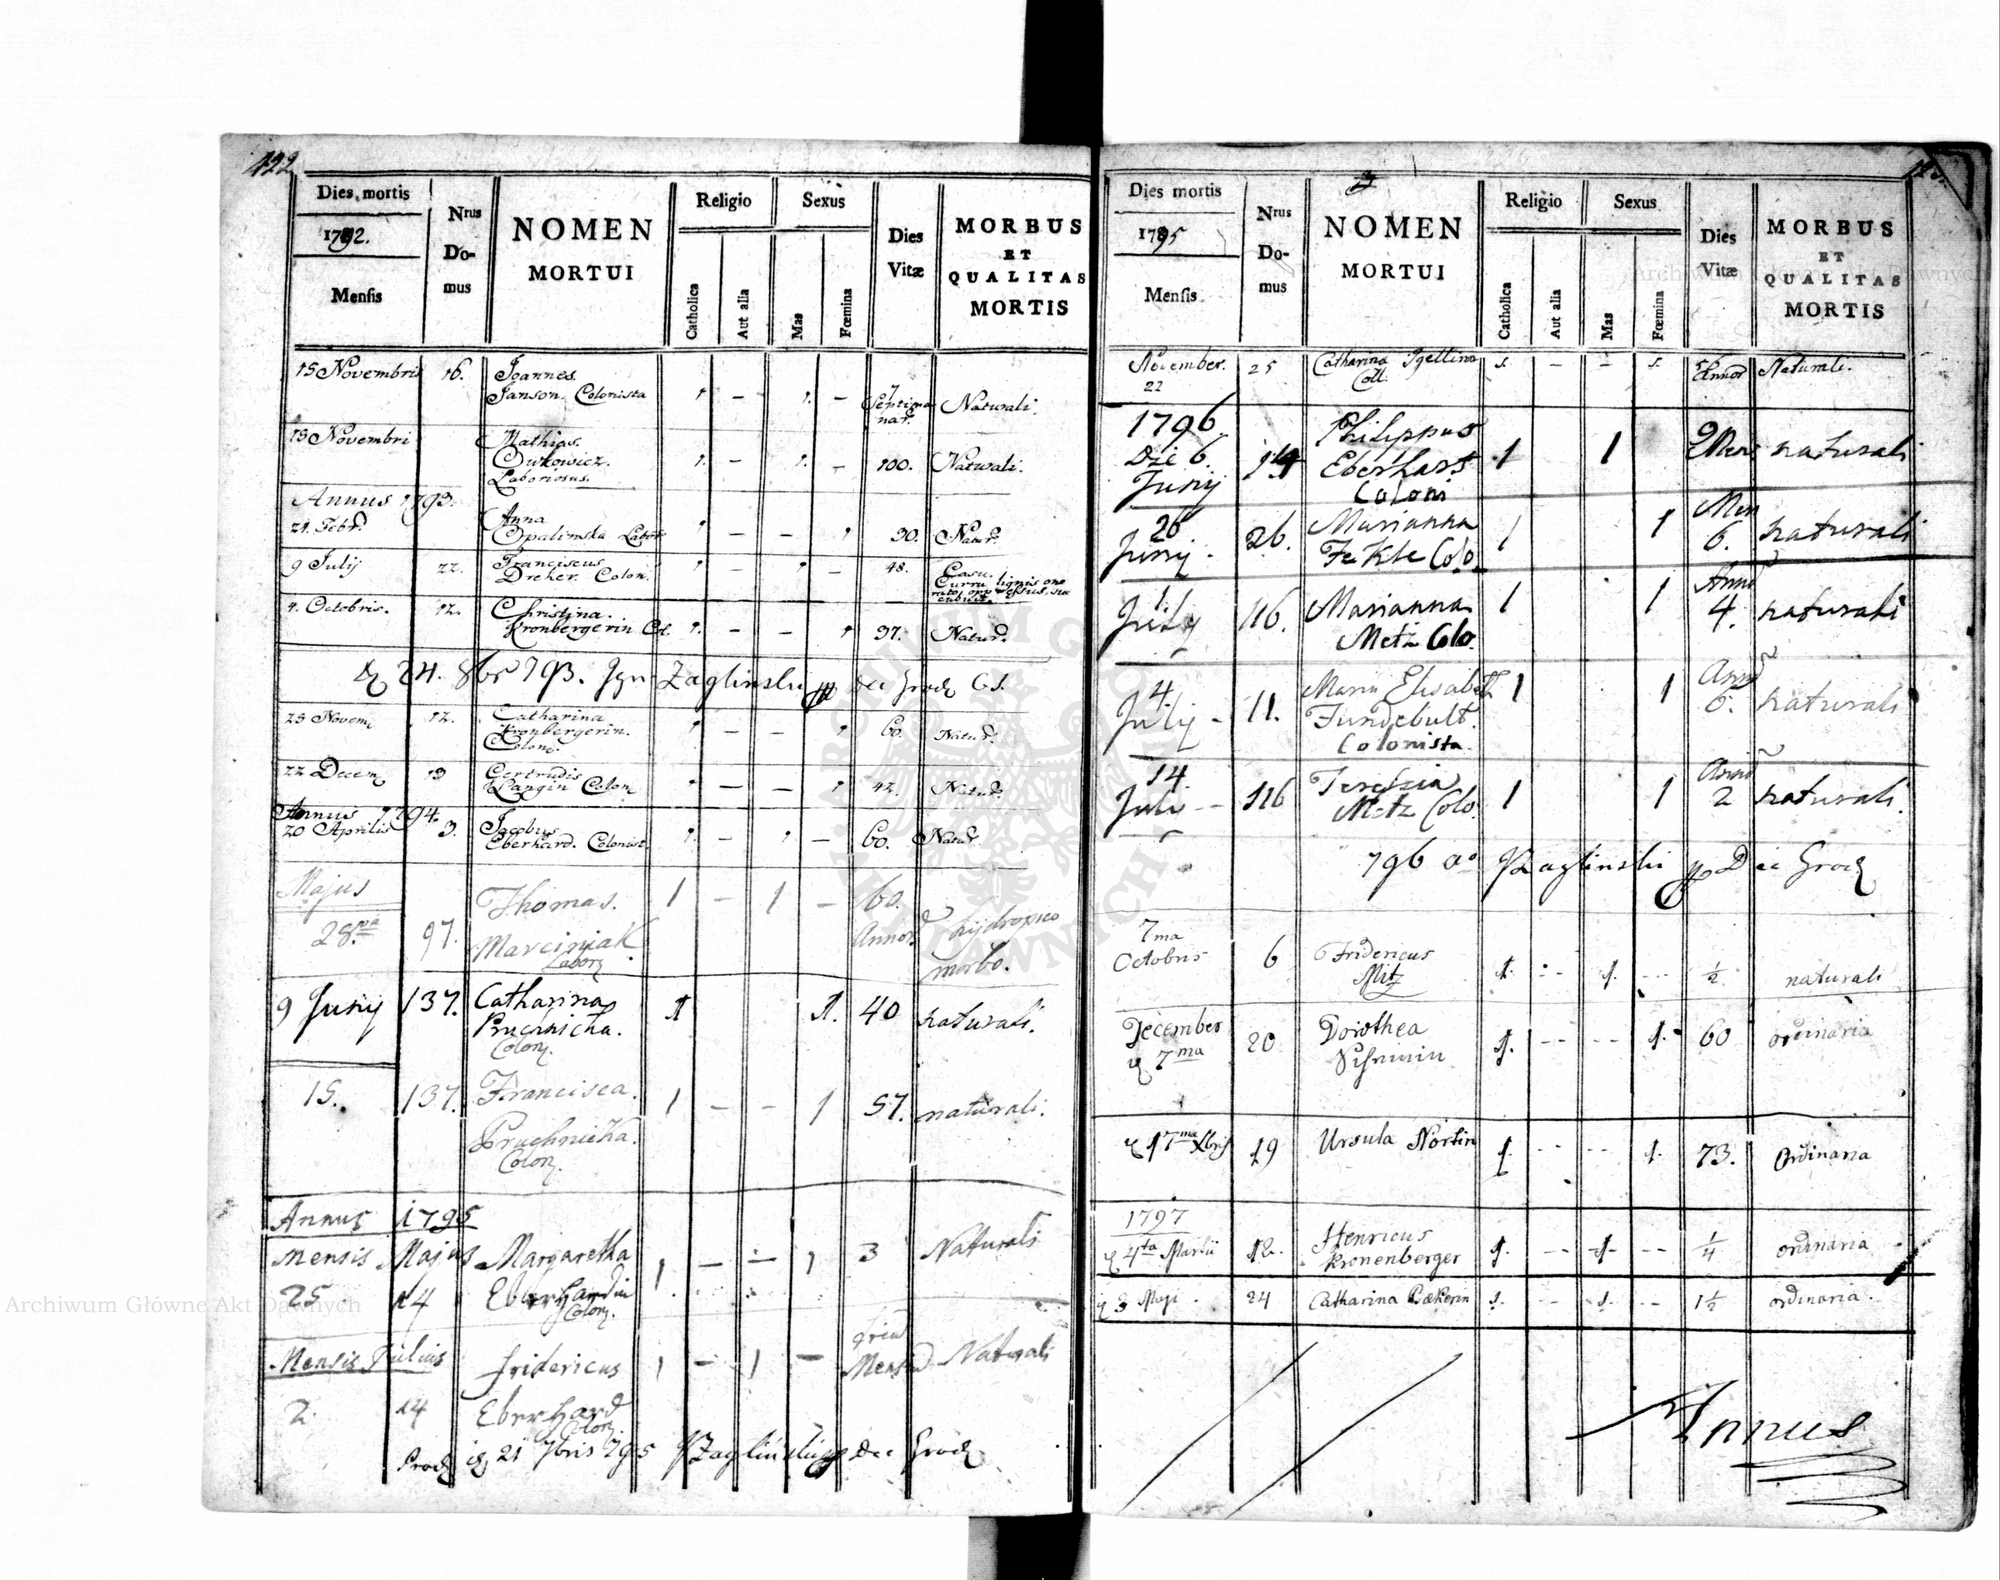 122
Dies mortis
1792.
Mensis
Nrus
Do-
mus
NOMEN
MORTUI
Religio
Catholica
Aut alia
Sexus
Mas
Fœmina
Dies
Vitæ
MORBUS
ET
QUALITAS
MORTIS
15 Novembris 16. Joannes
Janson Colonista 1. – 1. – 7
Septima
nar. Naturali.
13 Novembri Mathias
Laboriosus. 1. – 1. – 100. Naturali.
Annus 1793.
21. Febr. Anna
Opalinska Labor. 1 – – 1 30. Natur.
9 Julij 22. Franciscus
Dreher. Colon. 1 – 1 – 48. Casu.
Curru lignis
4. Octobris. 12. Christina.
Kronbergerin Col. 1. – – 1 37. Natur.
24. 8br 793. Zaglinski Dec Grod
23 Novem 12. Catharina
Kronbergerin.
Colon. 1 – – 1 60. Natur.
22 Decem 13 Gertrudis
Langin Colon 1 – – 1 42. Natur.
Annus 1794.
20 Aprilis 3. Jacobus
Eberhard. Colonist. 1. – 1 – 60. Natur
Majus
28. 97. Thomas.
Marciniak
Labor 1 – 1 – 60.
Annor hydropico
morbo.
9 Junij 137. Catharina
Pruchnicka.
Colon. 1 1. 40 naturali.
15. 137. Francisca.
Pruchnicka.
Colon. 1 – – 1 57. naturali.
Annus 1795
Mensis Majus Margaretha
25 14 Eberhardin
Colon. 1 – – 1 3 Naturali
Mensis Julius Fridericus
2. 14 Eberhard
Colon. 1 – 1 – Mens Naturali
21 7bris 795 Zaglinski Dec Grod
Dies mortis
1795
Mensis
Nrus
Do-
mus
NOMEN
MORTUI
Religio
Catholica
Aut alia
Sexus
Mas
Fœmina
Dies
Vitæ
MORBUS
ET
QUALITAS
MORTIS
November.
22 25 Catharina
Coll. 1. – – 1. 56
Annor Naturali.
1796.
Die 6.
Junij 14 Philippus
Eberhart
Coloni 1 1 9
Mens naturali
26
Junij 26. Marianna
Fekle Colo. 1 1 Men
6. naturali
1.
July 116. Marianna
Metz Colo. 1 1 Anno
4. naturali
4.
Julij 11. Maria Elisabeth
Fundebult.
Colonista. 1 1 Anno
6. naturali
14
Julij 116 Teredzia
Metz Colo. 1 1 Anno
2 naturali.
796 Zaglinski Dec Grod
7ma
Octobris 6 Fridericus
Mitz 1. – 1. – ½ naturali
December
7ma 20 Dorothea
1. – – 1. 60 ordinaria
17ma Xbris 19 Ursula Nortin 1. – – 1. 73. Ordinaria
1797
4ta Martii 12. Henricus
Kronenberger 1. – 1. – ¼ ordinaria
3 Maji 24 Catharina Bekerin 1. – 1. – 1½ ordinaria.
Annus
Archiwum Główne Akt Dawnych
Archiwum Główne Akt Dawnych
ARCHIWUM GŁÓWNE AKT DAWNYCH